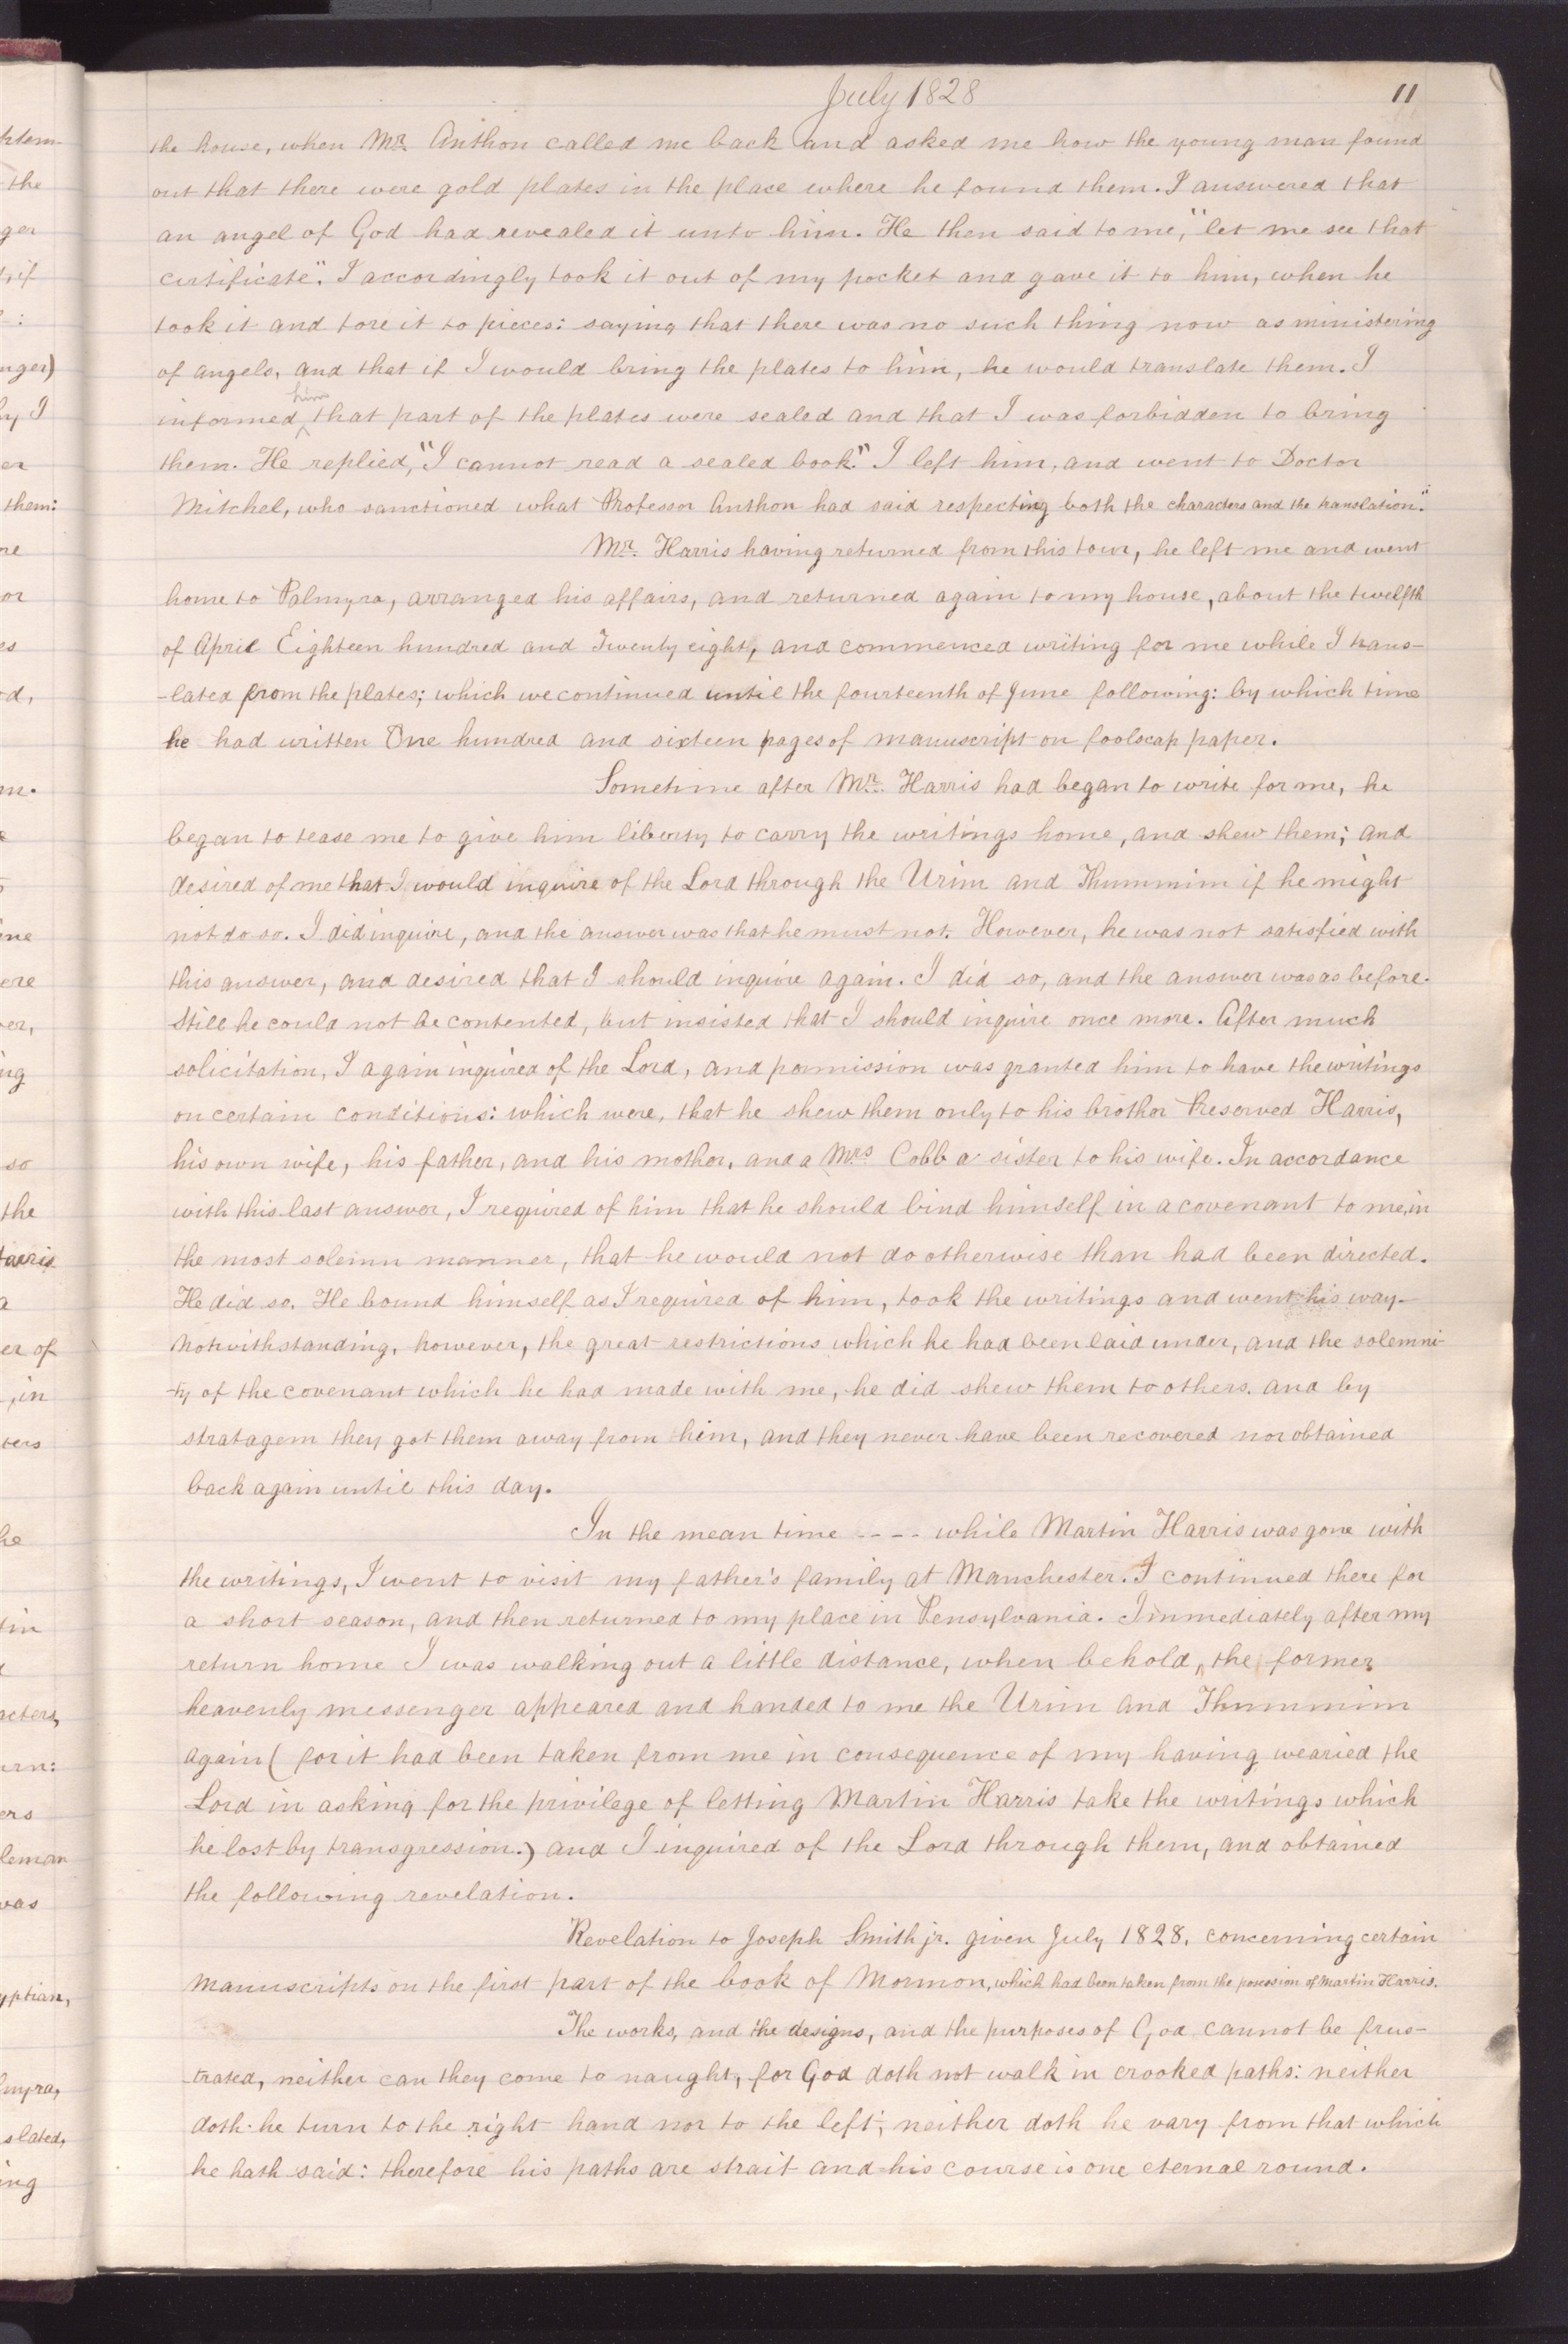 July 1828 11
the house, when Mr. Anthon called me back and asked me how the young man found
out that there were gold plates in the place where he found them. I answered that
an angel of God had revealed it unto him. He then said to me, "let me see that
certificate". I accordingly took it out of my pocket and gave it to him, when he
took it and tore it to pieces: saying that there was no such thing now as ministering
of angels, and that if I would bring the plates to him, he would translate them. I
him
informed that part of the plates were sealed and that I was forbidden to bring
them. He replied, "I cannot read a sealed book." I left him, and went to Doctor
Mitchel, who sanctioned what Professor Anthon had said respecting both the characters and the translation."
Mr. Harris having returned from this tour, he left me and went
home to Palmyra, arranged his affairs, and returned again to my house, about the twelfth
of April Eighteen hundred and Twenty eight, and commenced writing for me while I trans-
-lated from the plates; which we continued until the fourteenth of June following: by which time
he had written One hundred and sixteen pages of manuscript on foolscap paper.
Sometime after Mr. Harris had began to write for me, he
began to tease me to give him liberty to carry the writings home, and shew them; and
desired of me that I would inquire of the Lord through the Urim and Thummim if he might
not do so. I did inquire, and the answer was that he must not. However, he was not satisfied with
this answer, and desired that I should inquire again. I did so, and the answer was as before.
Still he could not be contented, but insisted that I should inquire once more. After much
solicitation, I again inquired of the Lord, and permission was granted him to have the writings
on certain conditions: which were, that he shew them only to his brother Preserved Harris,
his own wife, his father, and his mother, and a Mrs Cobb a sister to his wife. In accordance
with this last answer, I required of him that he should bind himself in a covenant to me, in
the most solemn manner, that he would not do otherwise than had been directed.
He did so. He bound himself as I required of him, took the writings and went his way-
Notwithstanding, however, the great restrictions which he had been laid under, and the solemni-
-ty of the covenant which he had made with me, he did shew them to others. and by
stratagem they got them away from him, and they never have been recovered nor obtained
back again until this day.
In the mean time ---- while Martin Harris was gone with
the writings, I went to visit my father's family at Manchester. I continued there for
a short season, and then returned to my place in Pensylvania. Immediately after my
return home I was walking out a little distance, when behold, the former
heavenly messenger appeared and handed to me the Urim and Thummim
again (for it had been taken from me in consequence of my having wearied the
Lord in asking for the privilege of letting Martin Harris take the writings which
he lost by transgression.) and I inquired of the Lord through them, and obtained
the following revelation.
Revelation to Joseph Smith jr. given July 1828, concerning certain
manuscripts on the first part of the book of Mormon, which had been taken from the possession of Martin Harris.
The works, and the designs, and the purposes of God cannot be frus-
-trated, neither can they come to naught, for God doth not walk in crooked paths: neither
doth he turn to the right hand nor to the left; neither doth he vary from that which
he hath said: therefore his paths are strait and his course is one eternal round.